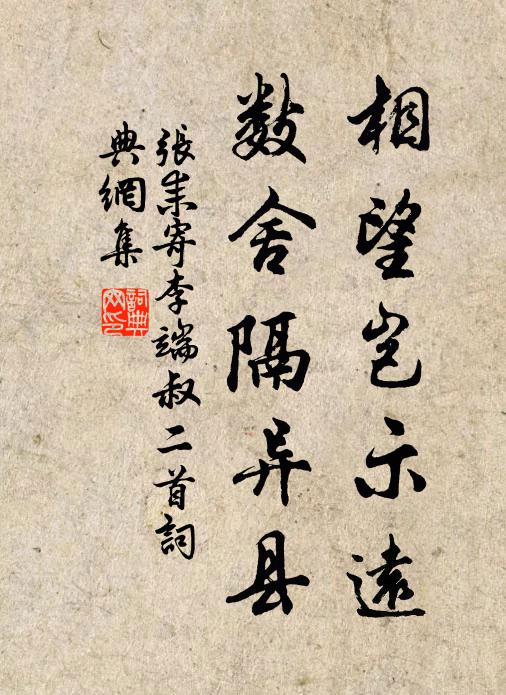 相望岂示遠
数舍隔异县
張耒寄李端叔二首詞
典網集
詞典网印